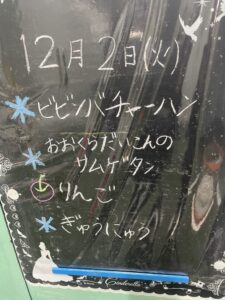 12月2日(火)
ビビンバチャーハン
おおくらだいこんの
サムゲタン
りんご
ぎゅうにゅう
Cinderella